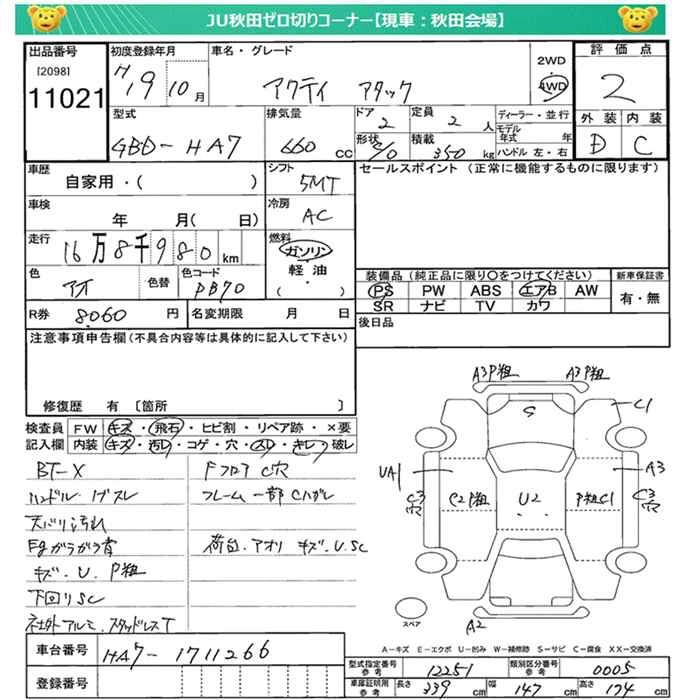 JU秋田ゼロ切りコーナー【現車：秋田会場】
出品番号 初度登録年月 車名・グレード 2WD 評価点
[2098] H19 10月 アクティ アタック 4WD 2
11021
型式 排気量 ドア 定員 ディーラー・並行 外装 内装
GBD-HA7 660 cc 2 2 人 モデル年式 年 D C
形状 積載 350 kg ハンドル 左・右
車歴 シフト セールスポイント (正常に機能するものに限ります)
自家用・( ) 5MT
車検 冷房
年 月( 日) AC
走行 燃料
16万8千980km ガソリン
軽油
( )
色 色替 色コード 装備品 (純正品に限り〇をつけてください) 新車保証書
アオ PB70 PS PW ABS エアB AW 有・無
SR ナビ TV カワ
R券 8060 円 名変期限 月 日 後日品
注意事項申告欄 (不具合内容等は具体的に記入して下さい)
修復歴 有 〔箇所 〕
検査員 FW キズ・飛石・ヒビ割・リペア跡・×要
記入欄 内装 キズ・汚レ・コゲ・穴・スレ・キレ・破レ
BT-X Fフロア C穴
ハンドル、ゲスレ フレーム一部Cハガレ
天バリ汚れ
Egガラガラ音 荷台、アオリ キズ.U.SC
キズ.U.P粗
下回りSC
社外アルミ.スタッドレスT
A3P粗 A3P粗
S C1
UA1 A3
C3穴 C2P粗 U2 P粗C1 C3穴
スペア A2
A-キズ E-エクボ U-凹み W-補修跡 S-サビ C-腐食 XX-交換済
車台番号 HA7-1711266
型式指定番号 参考 12251 類別区分番号 参考 0005
登録番号 車庫証明用 参考 長さ 339 cm 幅 147 cm 高さ 174 cm